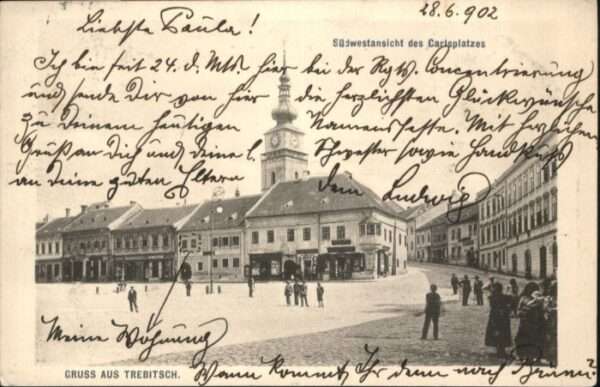 28.6.902
Liebste Paula!
Südwestansicht des Carlsplatzes
Ich bin seit 24. d. Mts. hier bei der Rgts. Concentrierung
und sende Dir von hier die herzlichsten Glückwünsche
zu Deinem heutigen Namensfeste. Mit herzlichem
Gruß an Dich und deine l. Schwester sowie Handkuß
an deine guten Eltern Dein Ludwig
Meine Wohnung
Wann kommt Ihr denn nach
GRUSS AUS TREBITSCH.